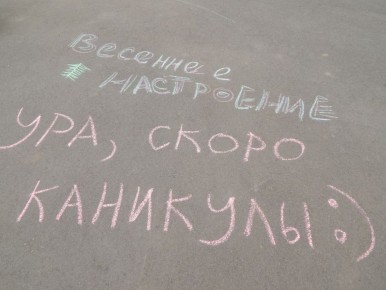 Весеннее
НАСТРОЕНИЕ
УРА, СКОРО
КАНИКУЛЫ:)